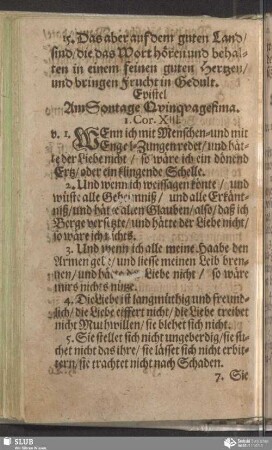 15. Das aber auf dem guten Land/
sind/ die das Wort hören und behal-
ten in einem feinen guten Hertzen/
und bringen Frucht in Gedult.
Epistel
Am Sontage Qvinqvagesima.
1. Cor. XIII.
v. 1. WEnn ich mit Menschen- und mit
Engel-Zungen redet/ und hät-
te der Liebe nicht/ so wäre ich ein dönend
Ertz/ oder ein klingende Schelle.
2. Und wenn ich weissagen könte/ und
wüste alle Geheimniß/ und alle Erkänt-
niß/ und hätte allen Glauben/ also/ daß ich
Berge versetzte/ und hätte der Liebe nicht/
so wäre ich nichts.
3. Und wenn ich alle meine Haabe den
Armen gebe/ und liesse meinen Leib bren-
nen/ und hätte der Liebe nicht/ so wäre
mirs nichts nütze.
4. Die Liebe ist langmüthig und freund-
lich/ die Liebe eiffert nicht/ die Liebe treibet
nicht Muthwillen/ sie blehet sich nicht.
5. Sie stellet sich nicht ungeberdig/ sie sü-
chet nicht das ihre/ sie lässet sich nicht erbit-
tern/ sie trachtet nicht nach Schaden.
7. Sie
SLUB
Wir führen Wissen.